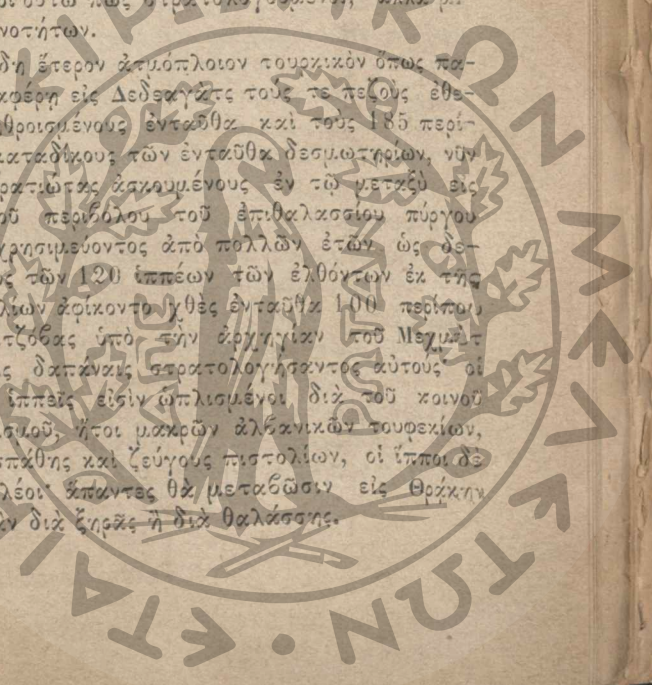 νοτήτων.
δη ἕτερον ἀτμόπλοιον τουρκικὸν ὅπως πα-
αφέρῃ εἰς Δεδεαγὰτς τούς τε πεζοὺς ἐθε-
θροισμένους ἐνταῦθα καὶ τοὺς 185 περί-
καταδίκους τῶν ἐνταῦθα δεσμωτηρίων, νῦν
ρατιώτας ἀσκουμένους ἐν τῷ μεταξὺ εἰς
οῦ περιβόλου τοῦ ἐπιθαλασσίου πύργου
χρησιμεύοντος ἀπὸ πολλῶν ἐτῶν ὡς δε-
υς τῶν 120 ἱππέων τῶν ἐλθόντων ἐκ τῆς
λίων ἀφίκοντο χθὲς ἐνταῦθα 100 περίπου
τζόβας ὑπὸ τὴν ἀρχηγίαν τοῦ
ς δαπάναις στρατολογήσαντος αὐτούς οἱ
ἱππεῖς εἰσὶν ὡπλισμένοι διὰ τοῦ κοινοῦ
σμοῦ, ἤτοι μακρῶν ἀλβανικῶν τουφεκίων,
σπάθης καὶ ζεύγους πιστολίων, οἱ ἵπποι δὲ
λέοι ἅπαντες θὰ μεταβῶσιν εἰς Θρᾴκην
ν διὰ ξηρᾶς ἢ διὰ θαλάσσης.
ΕΤΑΙ ΚΙΡΩΝ ΜΕΛΕΤΩΝ